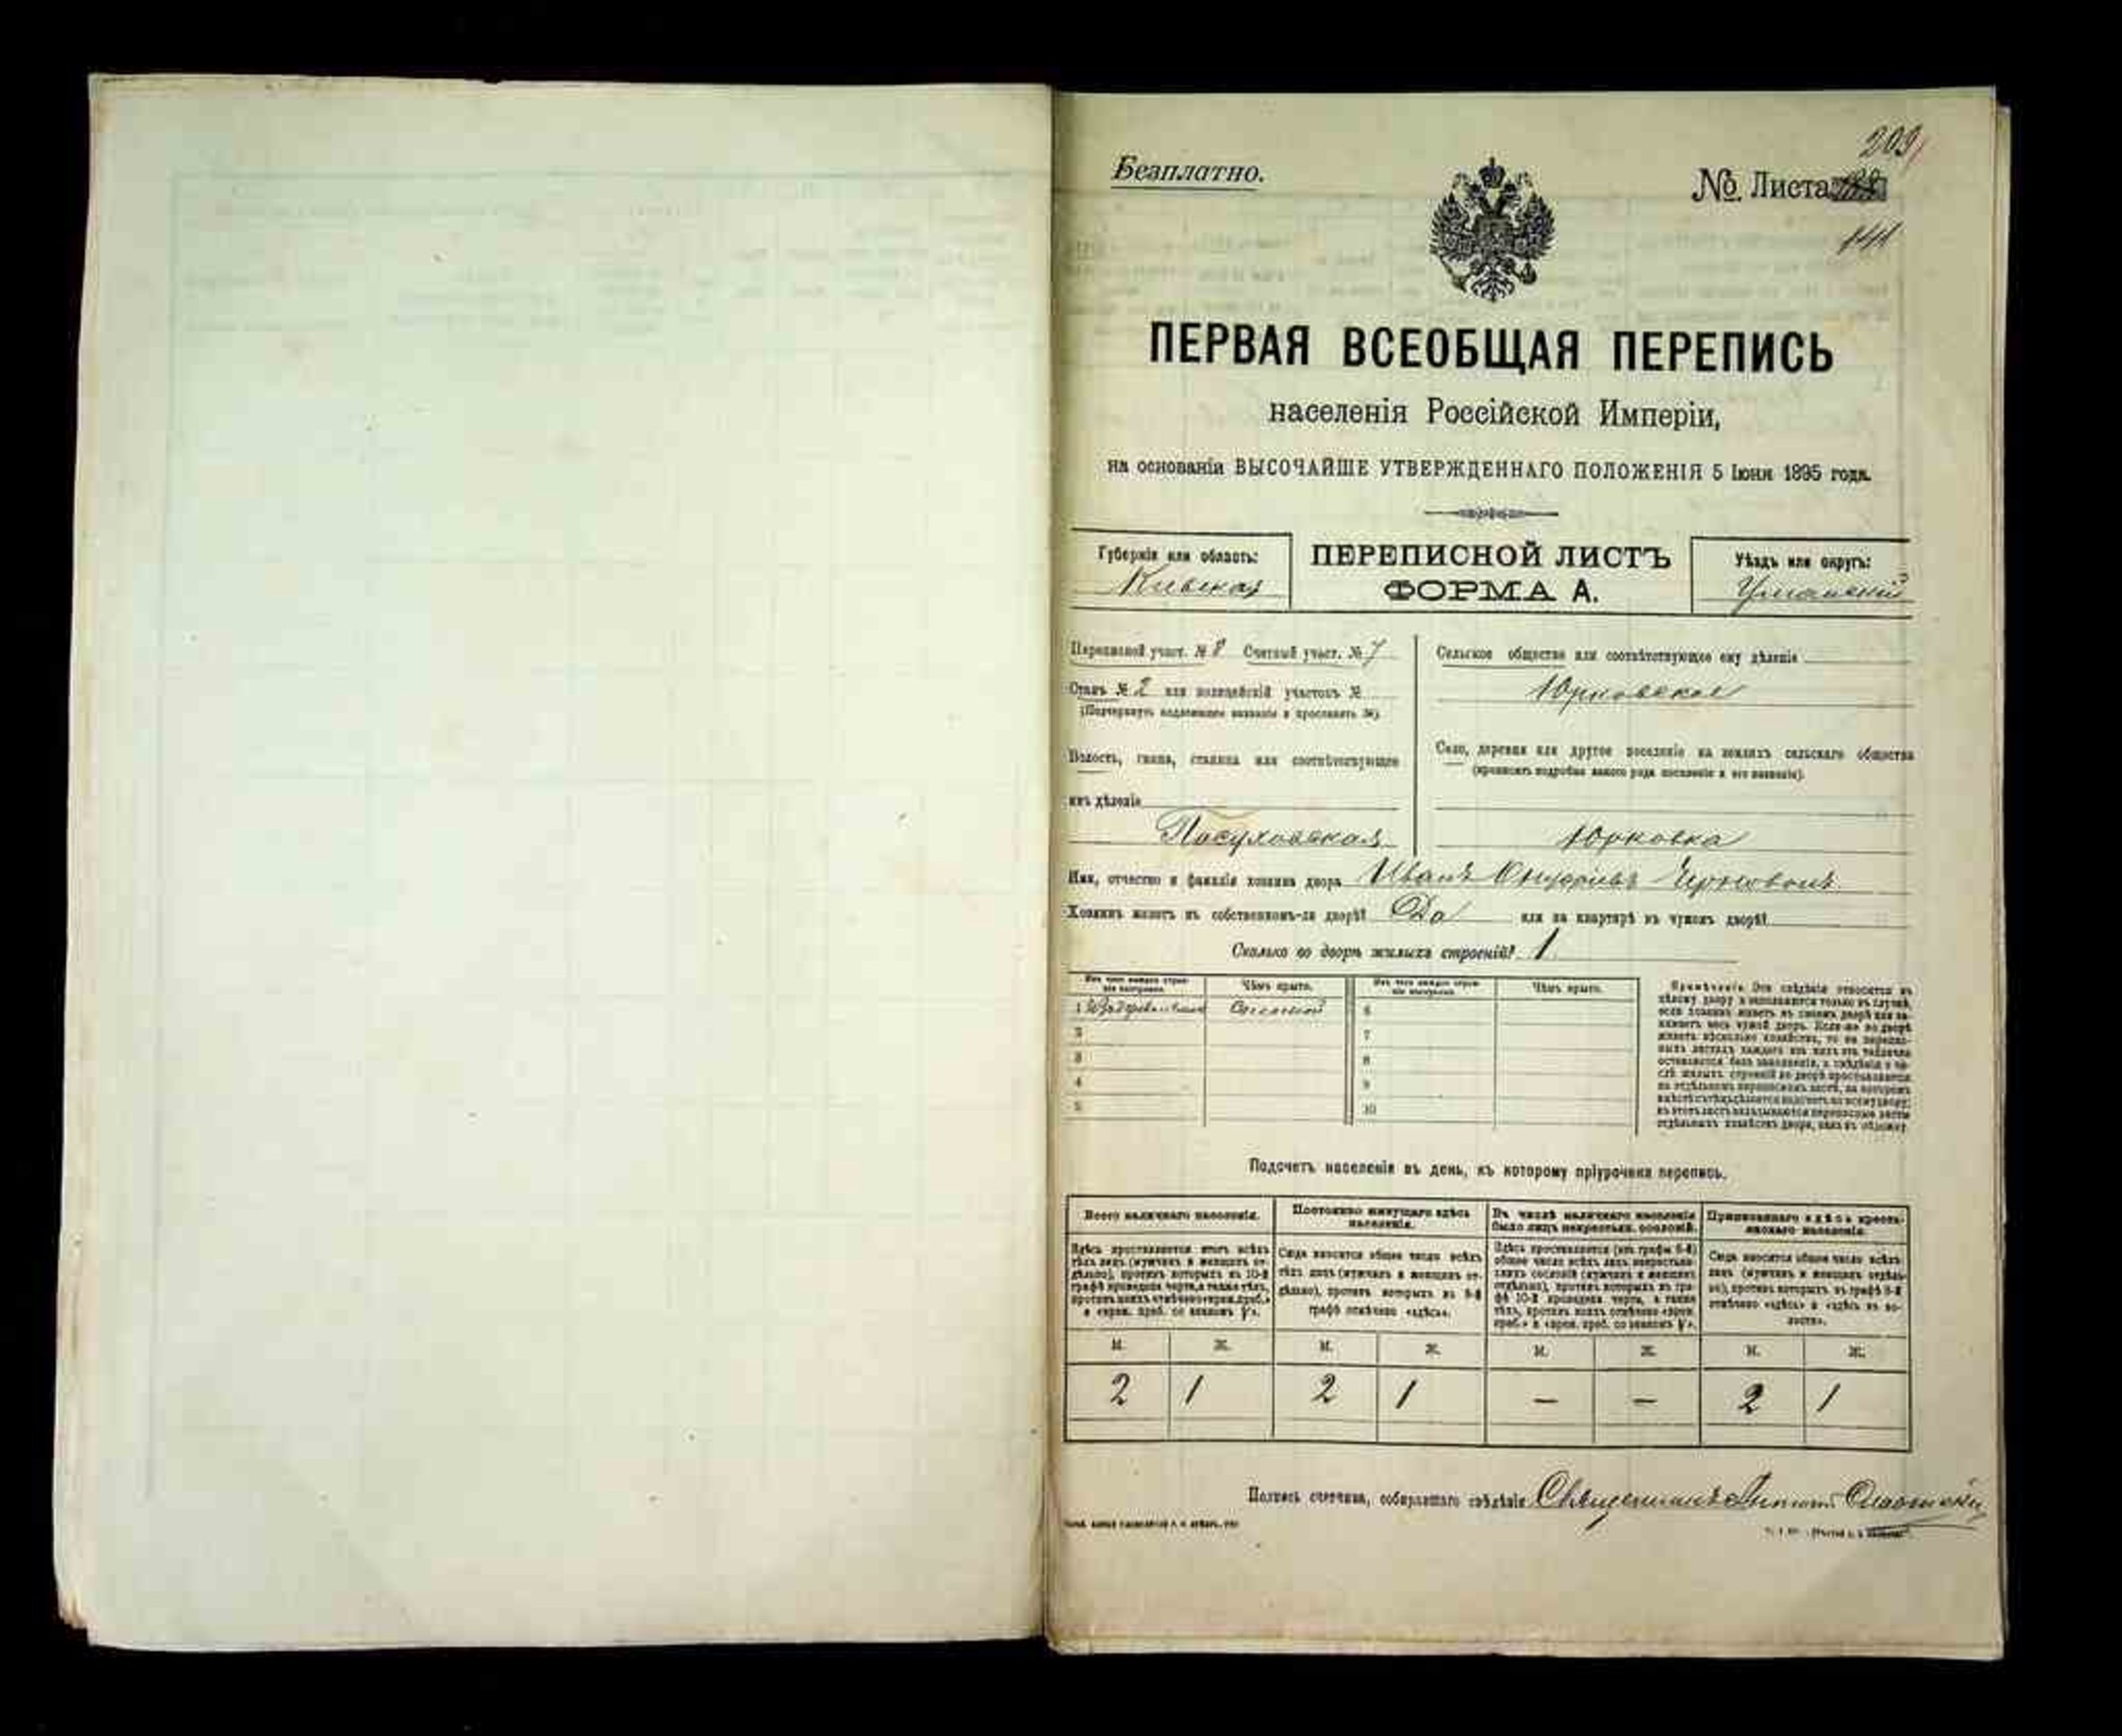 209
Безплатно.
№ Листа
141
ПЕРВАЯ ВСЕОБЩАЯ ПЕРЕПИСЬ
населенія Россійской Имперіи,
на основаніи ВЫСОЧАЙШЕ УТВЕРЖДЕННАГО ПОЛОЖЕНІЯ 5 Іюня 1895 года.
Губернія или область:
Кіевская
ПЕРЕПИСНОЙ ЛИСТЪ
ФОРМА А.
Уѣздъ или округъ:
Уманскій
Переписной участ. № 8 Счетный участ. № 7
Станъ № 2 или полицейскій участокъ №
(Подчеркнуть надлежащее названіе и проставить №).
Волость, гмина, станица или соотвѣтствующее
имъ дѣленіе
Посуховская
Сельское общество или соотвѣтствующее ему дѣленіе
Юрковское
Село, деревня или другое поселеніе на земляхъ сельскаго общества
(прописать подробно какого рода поселеніе и его названіе).
Юрковка
Имя, отчество и фамилія хозяина двора Иванъ Онуфріевъ
Хозяинъ живетъ въ собственномъ-ли дворѣ? Да или на квартирѣ въ чужомъ дворѣ?
Сколько во дворѣ жилыхъ строеній? 1
Изъ чего каждое строеніе построено. Чѣмъ крыто. Изъ чего каждое строеніе построено. Чѣмъ крыто.
1 6
2 7
3 8
4 9
5 10
Примѣчаніе. Эти свѣдѣнія относятся къ
цѣлому двору и заполняются только въ случаѣ,
если хозяинъ живетъ въ своемъ дворѣ или за-
нимаетъ весь чужой дворъ. Если-же во дворѣ
живетъ нѣсколько хозяйствъ, то на перепис-
ныхъ листахъ каждаго изъ нихъ эта табличка
остовляется безъ заполненія, а свѣдѣнія о чи-
слѣ жилыхъ строеній во дворѣ проставляются
на отдѣльномъ переписномъ листѣ, на которомъ
Подсчетъ населенія въ день, къ которому пріурочена перепись.
Всего наличнаго населенія.
Здѣсь проставляется итогъ всѣхъ
тѣхъ лицъ (мужчинъ и женщинъ от-
дѣльно), противъ которыхъ въ 10-й
графѣ проведена черта, а также тѣхъ,
противъ коихъ отмѣчено «врем. преб.»
и «врем. преб. со знакомъ V».
Постоянно живущаго здѣсь
населенія.
Сюда вносится общее число всѣхъ
тѣхъ лицъ (мужчинъ и женщинъ от-
дѣльно), противъ которыхъ въ 9-й
графѣ отмѣчено «здѣсь».
Въ числѣ наличнаго населенія
было лицъ некрестьян. сословій.
Здѣсь проставляется (изъ графы 6-й)
общее число всѣхъ лицъ некрестьян-
скихъ сословій (мужчинъ и женщинъ
отдѣльно), противъ которыхъ въ гра-
фѣ 10-й проведена черта, а также
тѣхъ, противъ коихъ отмѣчено «врем.
преб.» и «врем. преб. со знакомъ V».
Приписаннаго здѣсь кресть-
янскаго населенія.
Сюда вносится общее число всѣхъ
лицъ (мужчинъ и женщинъ отдѣль-
но), противъ которыхъ въ графѣ 8-й
отмѣчено «здѣсь» и «здѣсь въ во-
лости».
М. Ж. М. Ж. М. Ж. М. Ж.
2 1 2 1 — — 2 1
Подпись счетчика, собиравшаго свѣдѣнія Священникъ